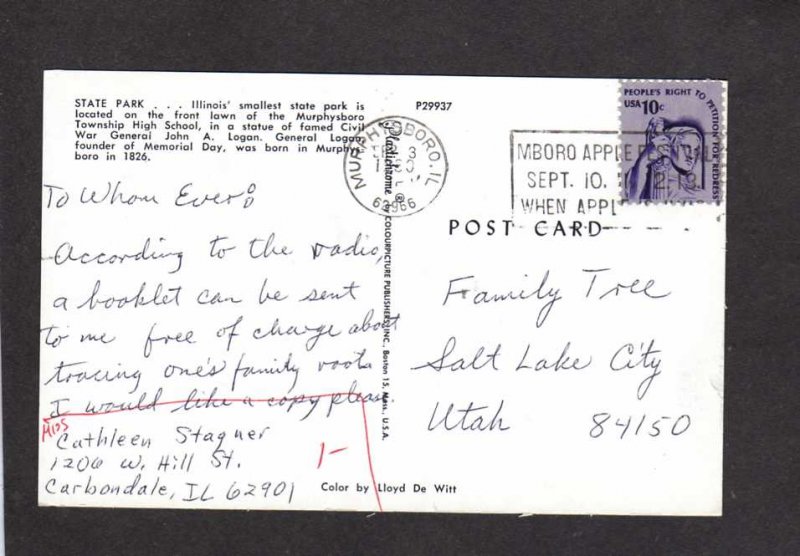 STATE PARK . . . Illinois' smallest state park is
located on the front lawn of the Murphysboro
Township High School, in a statue of famed Civil
War General John A. Logan. General Logan,
founder of Memorial Day, was born in Murphys-
boro in 1826.
P29937
To Whom Ever:
According to the radio,
a booklet can be sent
to me free of charge about
tracing one's family roots.
I would like a copy please.
Miss
Cathleen Stagner
1206 W. Hill St.
Carbondale, IL 62901
1-
Color by Lloyd De Witt
Plastichrome ® by COLOURPICTURE PUBLISHERS, INC., Boston 15, Mass., U.S.A.
MURPHYSBORO, IL
3
62966
MBORO APPLE
SEPT. 10,
WHEN APPL
PEOPLE'S RIGHT TO PETITION FOR REDRESS
USA 10c
POST CARD
Family Tree
Salt Lake City
Utah 84150